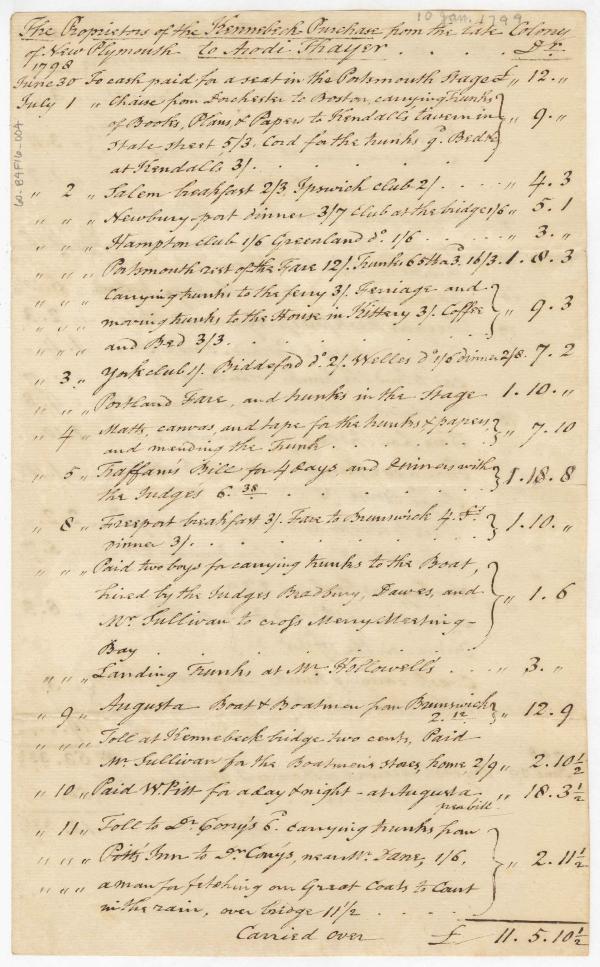 10 Jan. 1799
The Proprietors of the Kennebeck Purchase from the late Colony
of New Plymouth to Arodi Thayer . . . . Dr.
1798
June 30 To cash paid for a seat in the Portsmouth Stage £ " 12. "
July 1 " Chaise from Dorchester to Boston, carrying trunks
of Books, Plans & Papers to Kendall's Tavern in
State street 5/3. Cord for the trunks 9d. Bed &c } " 9. "
at Kendalls 3/. . . . . .
" 2 " Salem breakfast 2/3. Ipswich club 2/. . . . . " 4. 3
" " " Newbury-port dinner 3/7 Club at the bridge 1/6 " 5. 1
" " " Hampton club 1/6 Greenland do. 1/6 . . . . " 3. "
" " " Portsmouth rest of the Fare 12/. Trunks 65 lb a 3d. 16/3. 1. 8. 3
" " " Carrying trunks to the ferry 3/. Ferriage and
" " " moving trunks to the House in Kittery 3/. Coffee } " 9. 3
" " " and Bed 3/3. . . . . . .
" 3 " York club 1/. Biddeford do. 2/. Welles do. 1/6 dinner 2/8. 7. 2
" " " Portland Fare, and trunks in the Stage 1. 10. "
" 4 " Matts, canvas, and tape for the trunks & papers
and mending the Trunk . . . . . . } " 7. 10
" 5 " Bill for 4 days and dinners with
the Judges 6. 38 . . . . . } 1. 18. 8
" 8 " Freeport breakfast 3/. Fare to Brunswick 4.
dinner 3/. . . . . . } 1. 10. "
" " " Paid two boys for carrying trunks to the Boat,
hired by the Judges Bradbury, Dawes, and
Mr. Sullivan to cross Merry Meeting- } " 1. 6
Bay . . . . . .
" " " Landing Trunks at Mr. Hollowell's . . . " 3. "
" 9 " Augusta Boat & Boatmen from Brunswick
2. 12 } " 12. 9
" " " Toll at Kennebeck bridge two cents, Paid
Mr. Sullivan for the Boatmen's stores, home, 2/9 " 2. 10 1/2
" 10 " Paid W. Pitt for a day & night - at Augusta
per bill. " 18. 3 1/2
" 11 " Toll to Dr. Cony's 6d. carrying trunks from
" " " Pitt's Inn to Dr. Cony's, near Mr. Lane, 1/6, } " 2. 11 1/2
" " " a man for fetching our Great Coats to Court
in the rain, over bridge 11 1/2 . . . .
Carried over £ 11. 5. 10 1/2